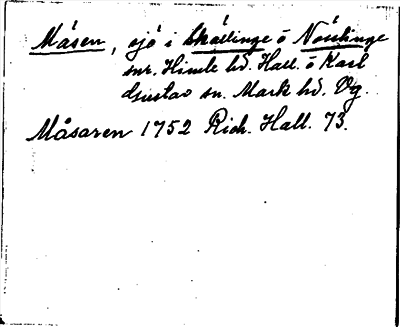 Måsen, sjö i Skällinge o Nösslinge
snr. Himle hd. Hall. o Karl
Gustav sn. Mark hd. Vg.
Måsaren 1752 Rich. Hall. 73.